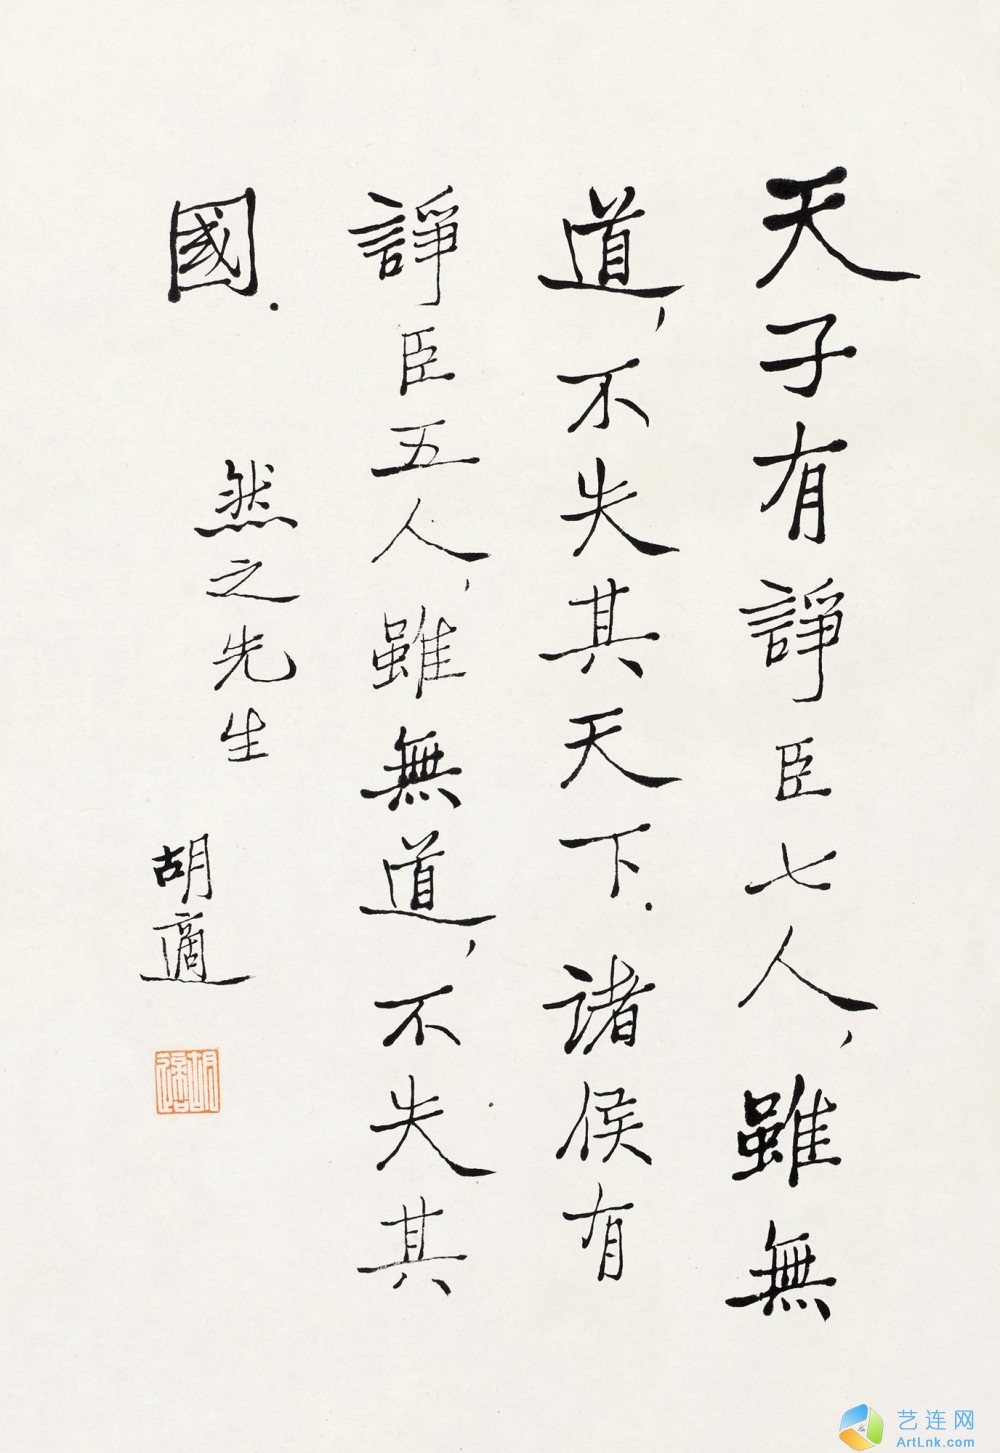 天子有諍臣七人，雖無
道，不失其天下．諸侯有
諍臣五人，雖無道，不失其
國．
然之先生
胡適
胡適
艺连网
ArtLnk.com